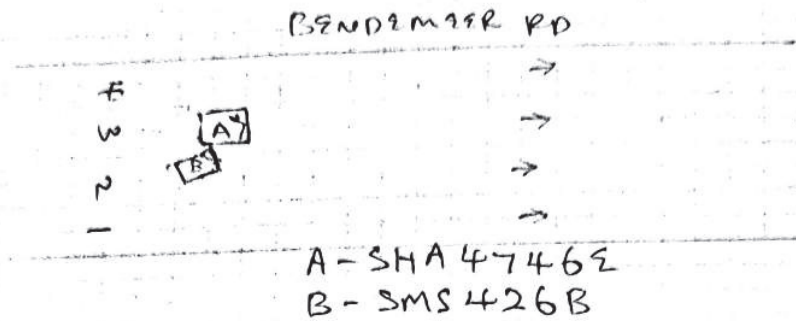 BENDEMEER RD
4
3
A
B
2
1
A - SHA4746E
B - SMS426B